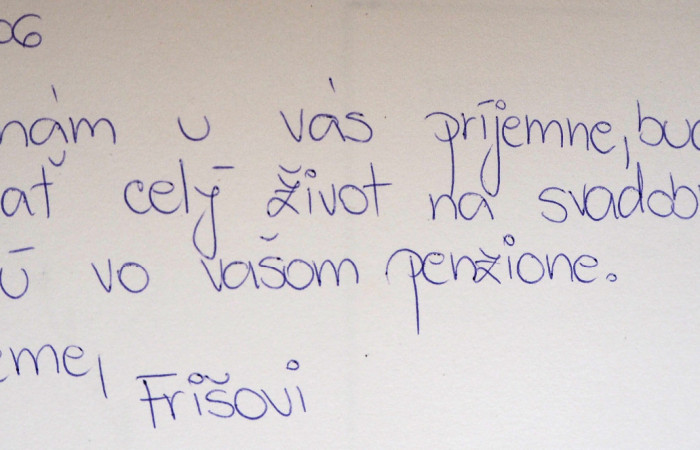 06
nám u vás príjemne, bud
ať celý život na svadob
ú vo vašom penzione.
eme,
Frišovi